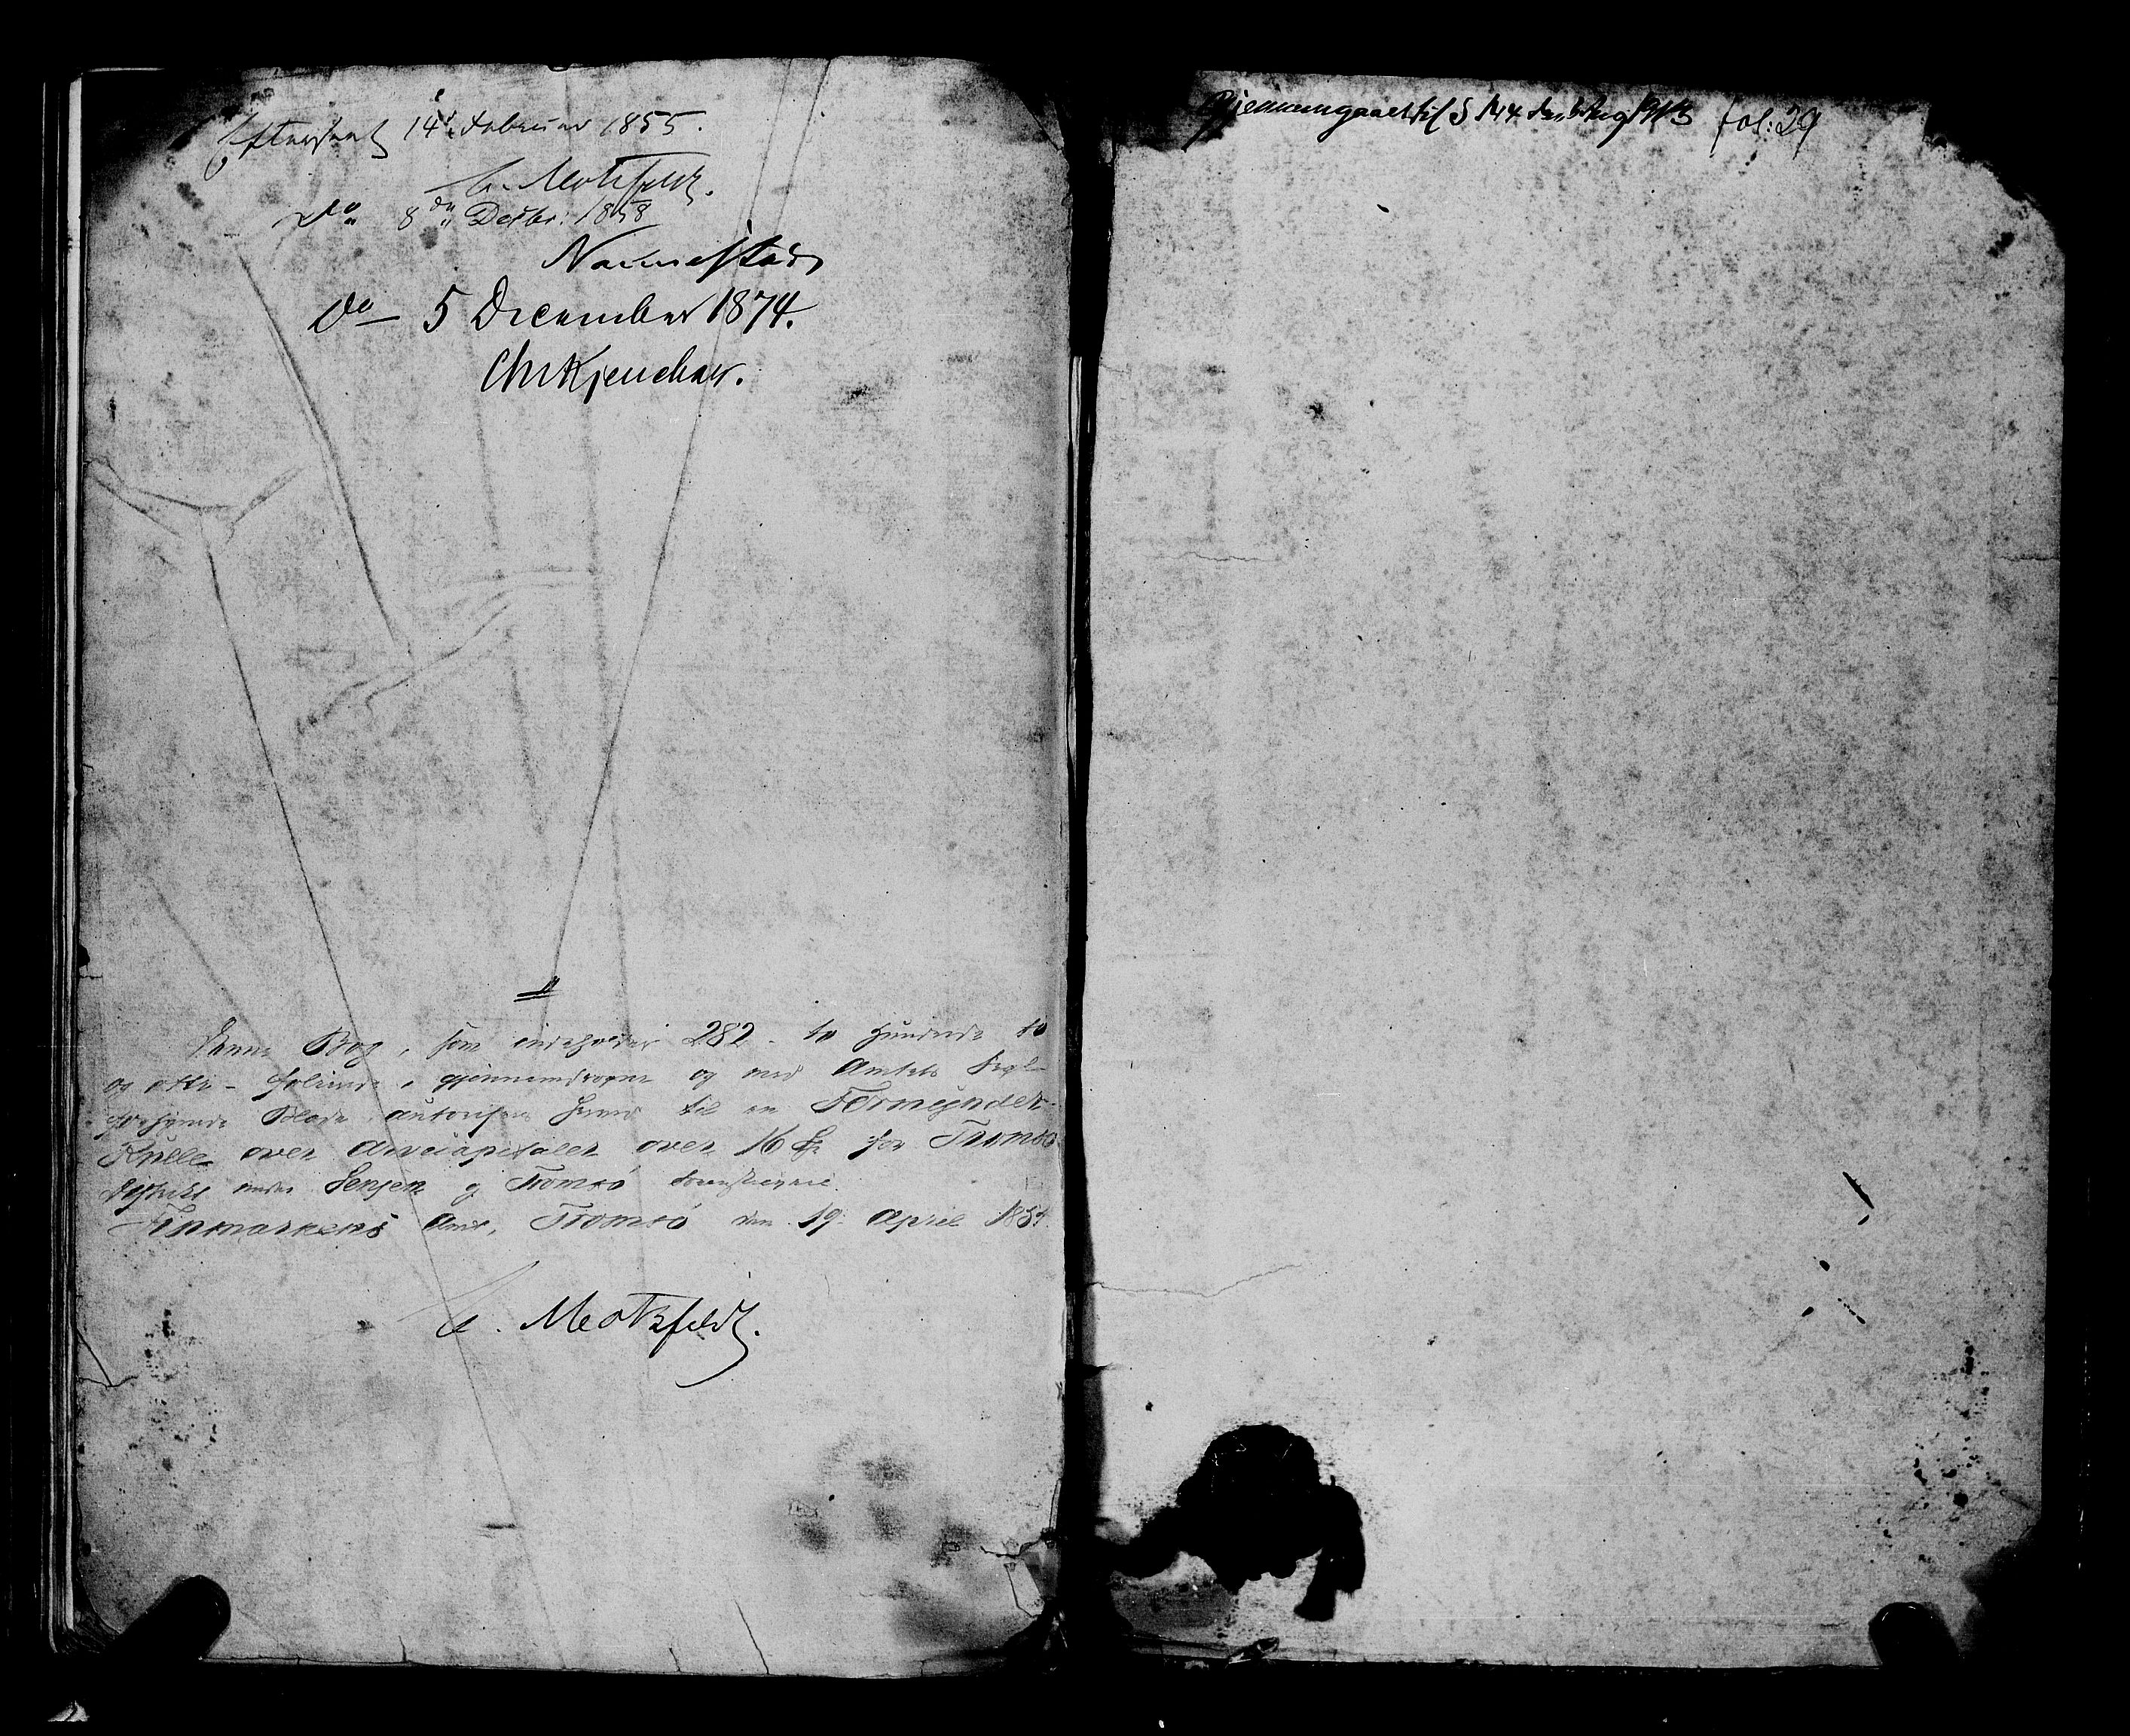 Efterseet 14de Februar 1855.
C. Motzfeldt.
Do 8de Decbr: 1858
Do – 5 December 1874.
Chr Kjerschow.
Denne Bog, som indeholder 282 – to Hundrede to
og otti – folierede, gjennemdragne og med Amtets Segl
forsynede Blade, autoriseres herved til en Formynder-
Rulle over Arvecapitaler over 16 for Tromsö
District under Senjen og Tromsö Sorenskriverie.
Finmarkens Amt, Tromsö den 19 April 1854.
C. Motzfeldt.
Gjennemgaaet til S 144 den Aug 1913 fol: 29